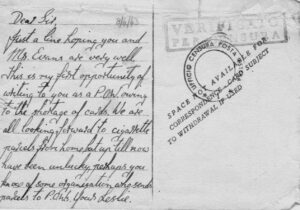 8/6/43
Dear Sir,
Just a line hoping you and
Mrs. Evans are very well
This is my first opportunity of
writing to you as a P.O.W. owing
to the shortage of cards. We are
all looking forward to cigarette
parcels from home, but up till now
have been unlucky, perhaps you
know of some organisation who sends
parcels to P.O.W's. Yours Leslie.
VERIFICATO
PER CENSURA
UFFICIO CENSURA POSTA
SPACE NOT AVAILABLE FOR
CORRESPONDENCE. CARD SUBJECT
TO WITHDRAWAL IF USED